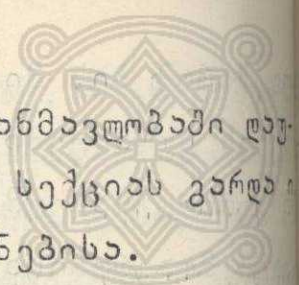 ანმავლობაში დაუ-
სექციას გარდა ი
ნებისა.